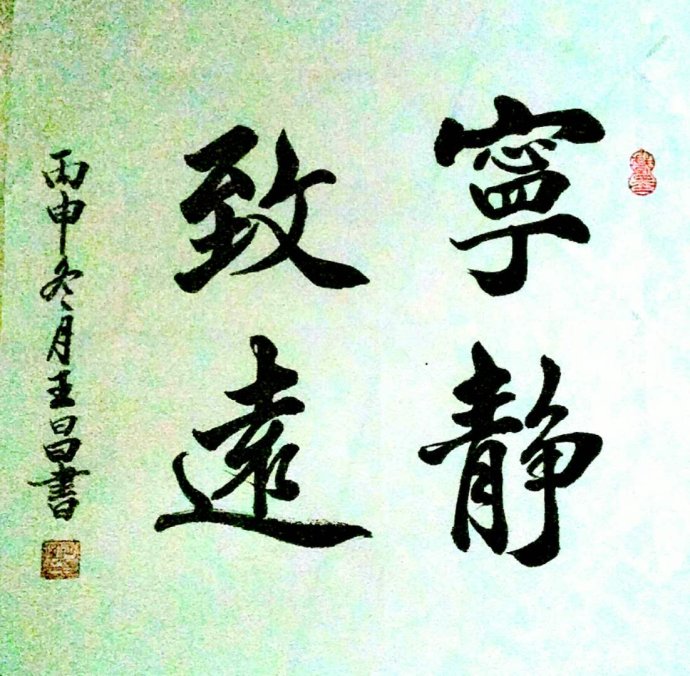 寧静
致遠
丙申冬月王昌書